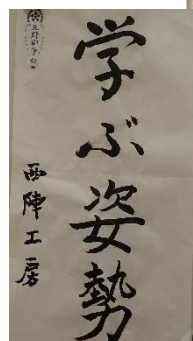 学ぶ姿勢
西陣工房